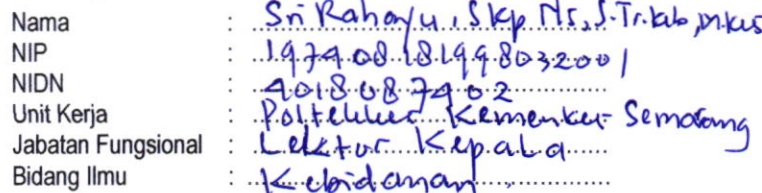 Nama : Sri Rahayu, SKp, Ns, S.Tr.Keb, M.Kes
NIP : 197408181998032001
NIDN : 4018087402
Unit Kerja : Poltekkes Kemenkes Semarang
Jabatan Fungsional : Lektor Kepala
Bidang Ilmu : Kebidanan